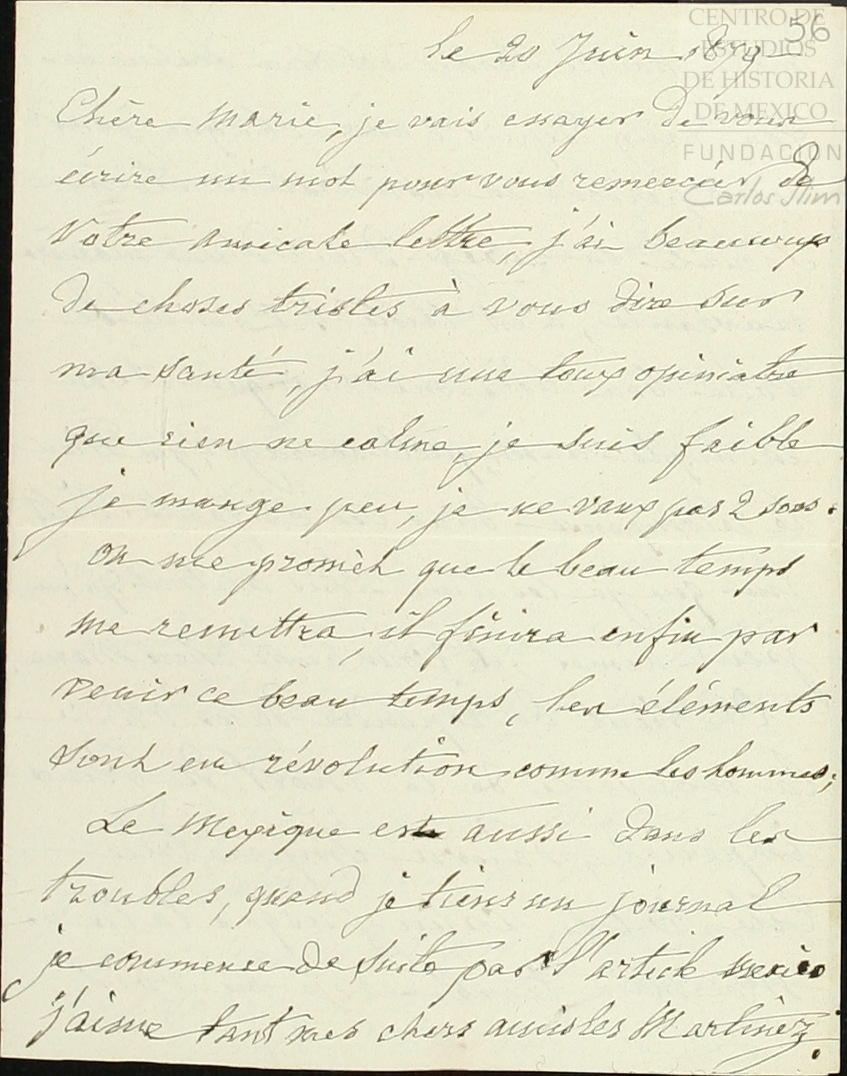 CENTRO DE
ESTUDIOS
DE HISTORIA
DE MEXICO
FUNDACIÓN
Carlos Slim
56
le 20 Juin
Chère Marie, je vais essayer de vous
écrire un mot pour vous remercier de
votre amicale lettre, j'ai beaucoup
de choses tristes à vous dire sur
ma santé, j'ai une toux opiniatre
que rien ne calme, je suis faible
je mange peu, je ne vaux pas 2 sous.
on me promèt que le beau temps
me remettra, il finira enfin par
venir ce beau temps, les éléments
sont en révolution comme les hommes;
Le Mexique est aussi dans les
troubles, quand je tiens un journal
je commence de suite par l'article mexico
j'aime tant mes chers amis les Martinez.